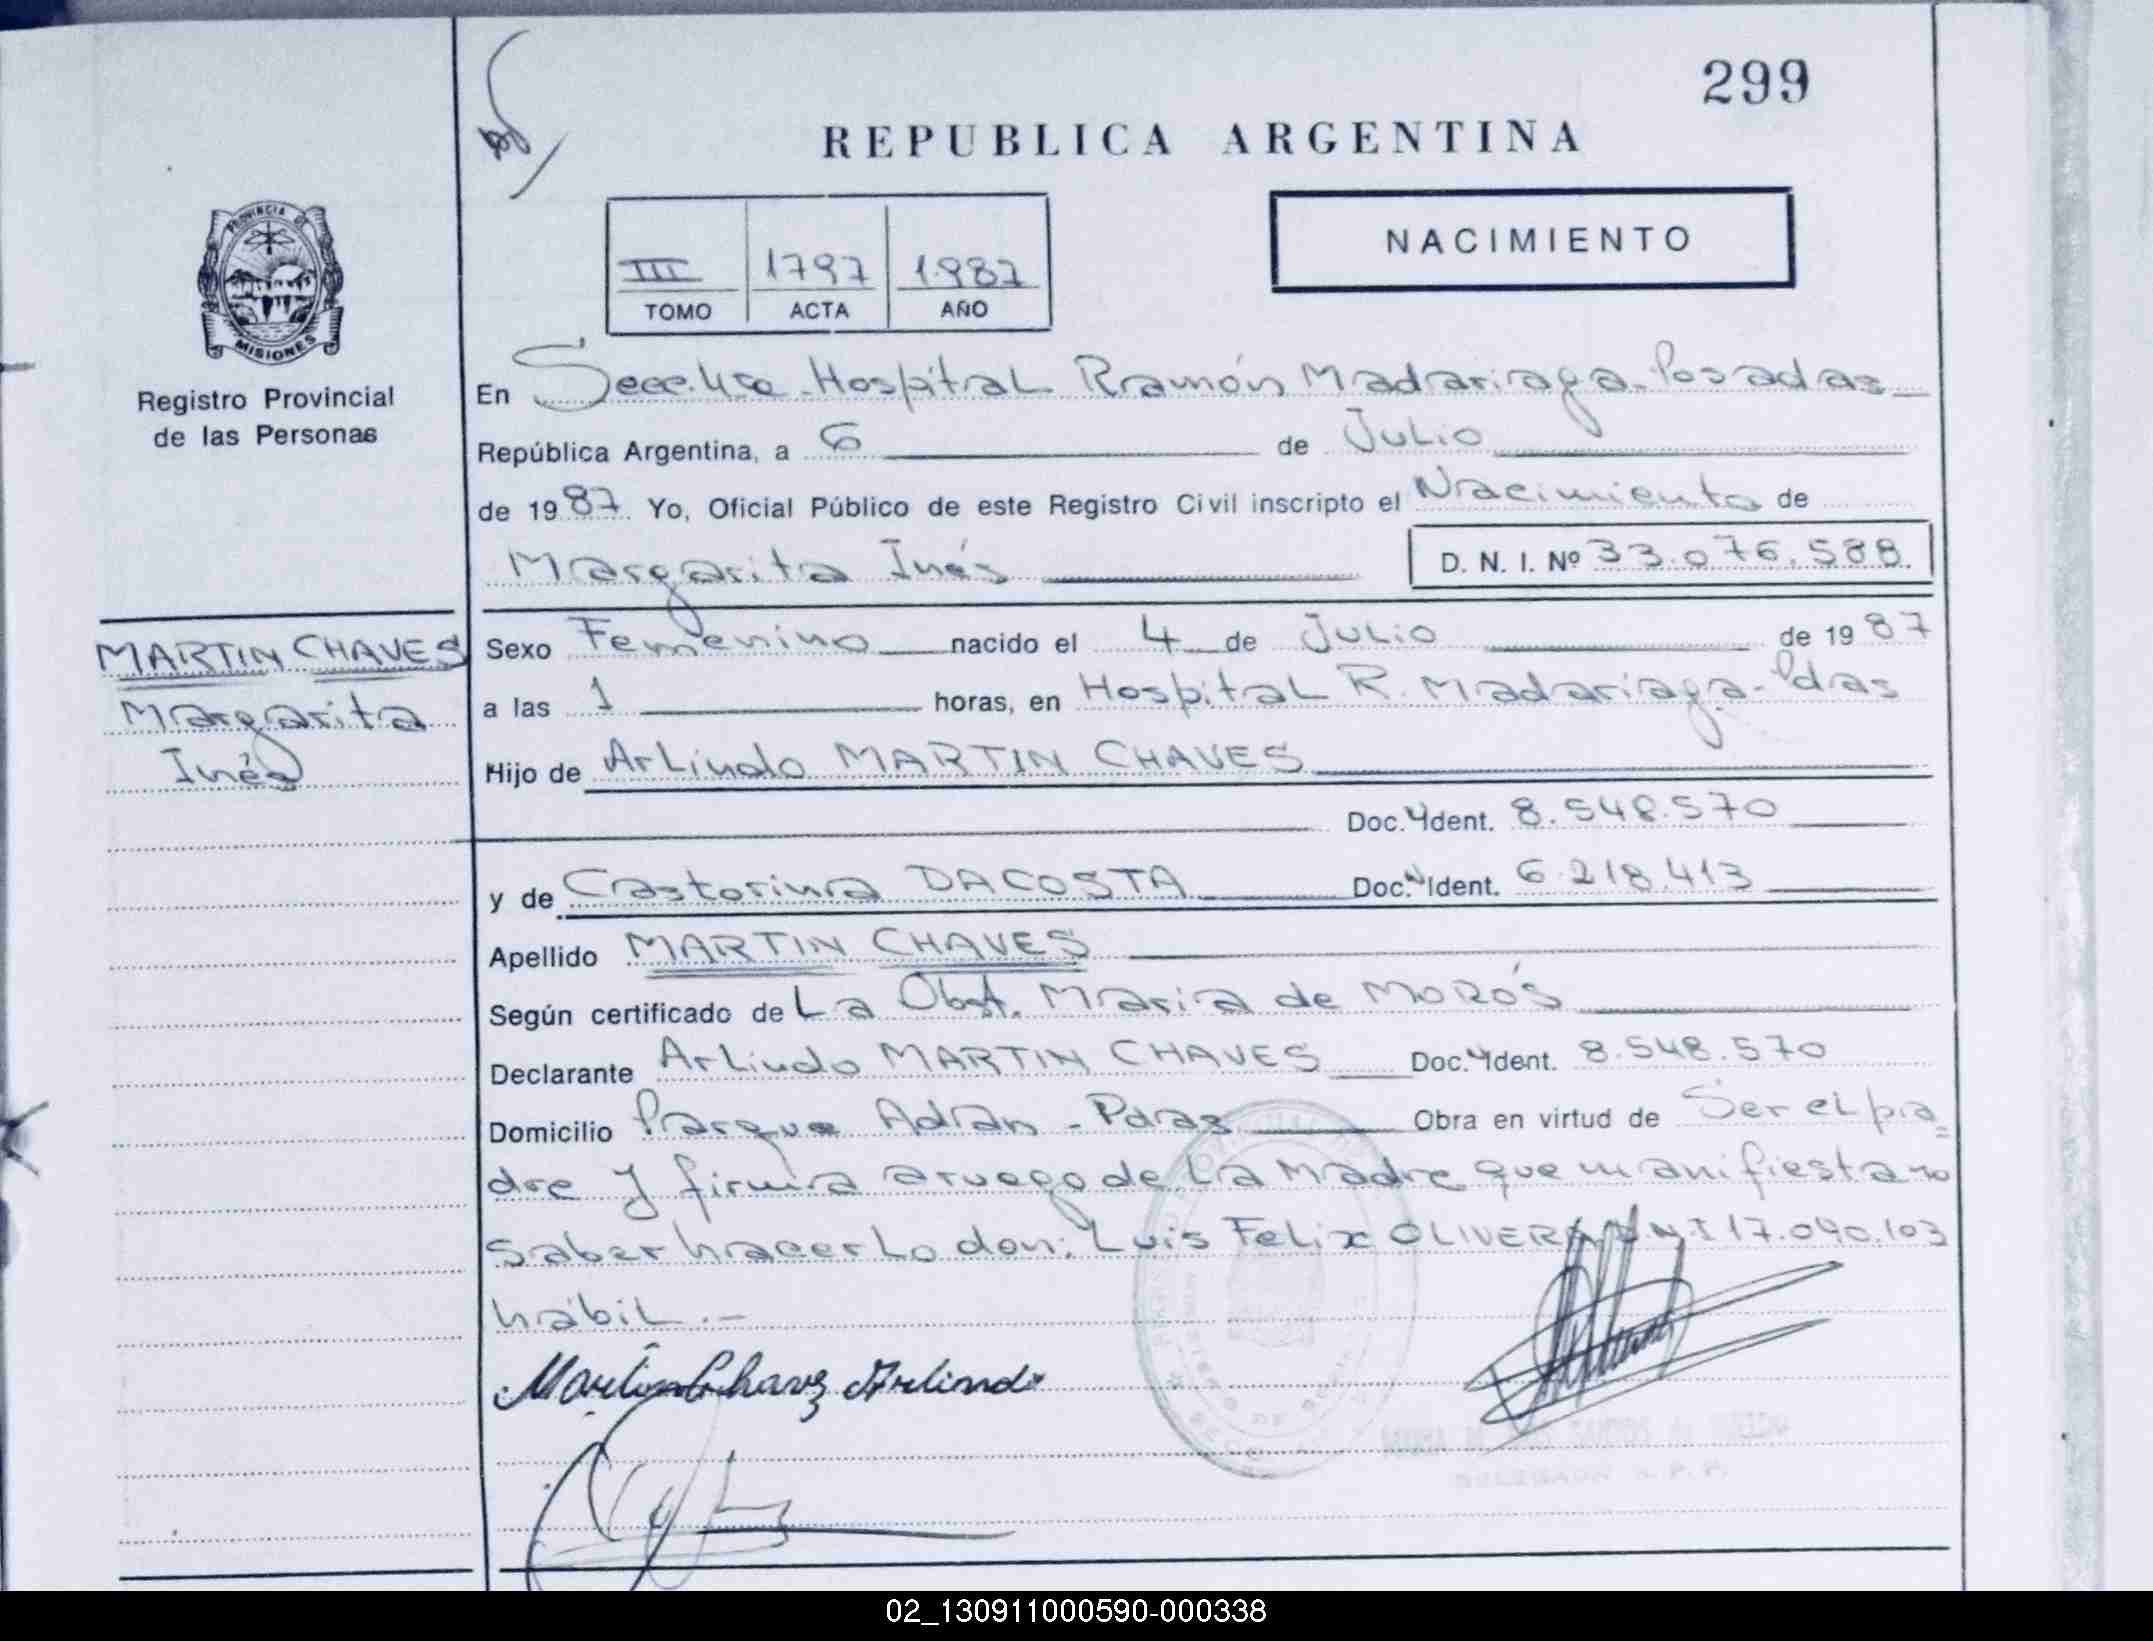 299
REPUBLICA ARGENTINA
PROVINCIA DE
MISIONES
Registro Provincial
de las Personas
III 1797 1987
TOMO ACTA AÑO
NACIMIENTO
En Secc. 4ta - Hospital Ramón Madariaga - Posadas
República Argentina, a 6 de Julio
de 1987. Yo, Oficial Público de este Registro Civil inscripto el Nacimiento de
Margarita Inés D. N. I. Nº 33.076.588.
MARTIN CHAVES
Margarita
Inés
Sexo Femenino nacido el 4 de Julio de 1987
a las 1 horas, en Hospital R. Madariaga - Pdas
Hijo de Arlindo MARTIN CHAVES
Doc. Ident. 8.548.570
y de Castorina DACOSTA Doc. Ident. 6.218.413
Apellido MARTIN CHAVES
Según certificado de La Obst. Maria de MOROS
Declarante Arlindo MARTIN CHAVES Doc. Ident. 8.548.570
Domicilio Parque Adran - Pdas Obra en virtud de Ser el pa=
dre y firma a ruego de La Madre que manifiesta no
saber hacerlo don: Luis Felix OLIVERA 17.090.103
hábil.-
Martin Chavez Arlindo
02_130911000590-000338